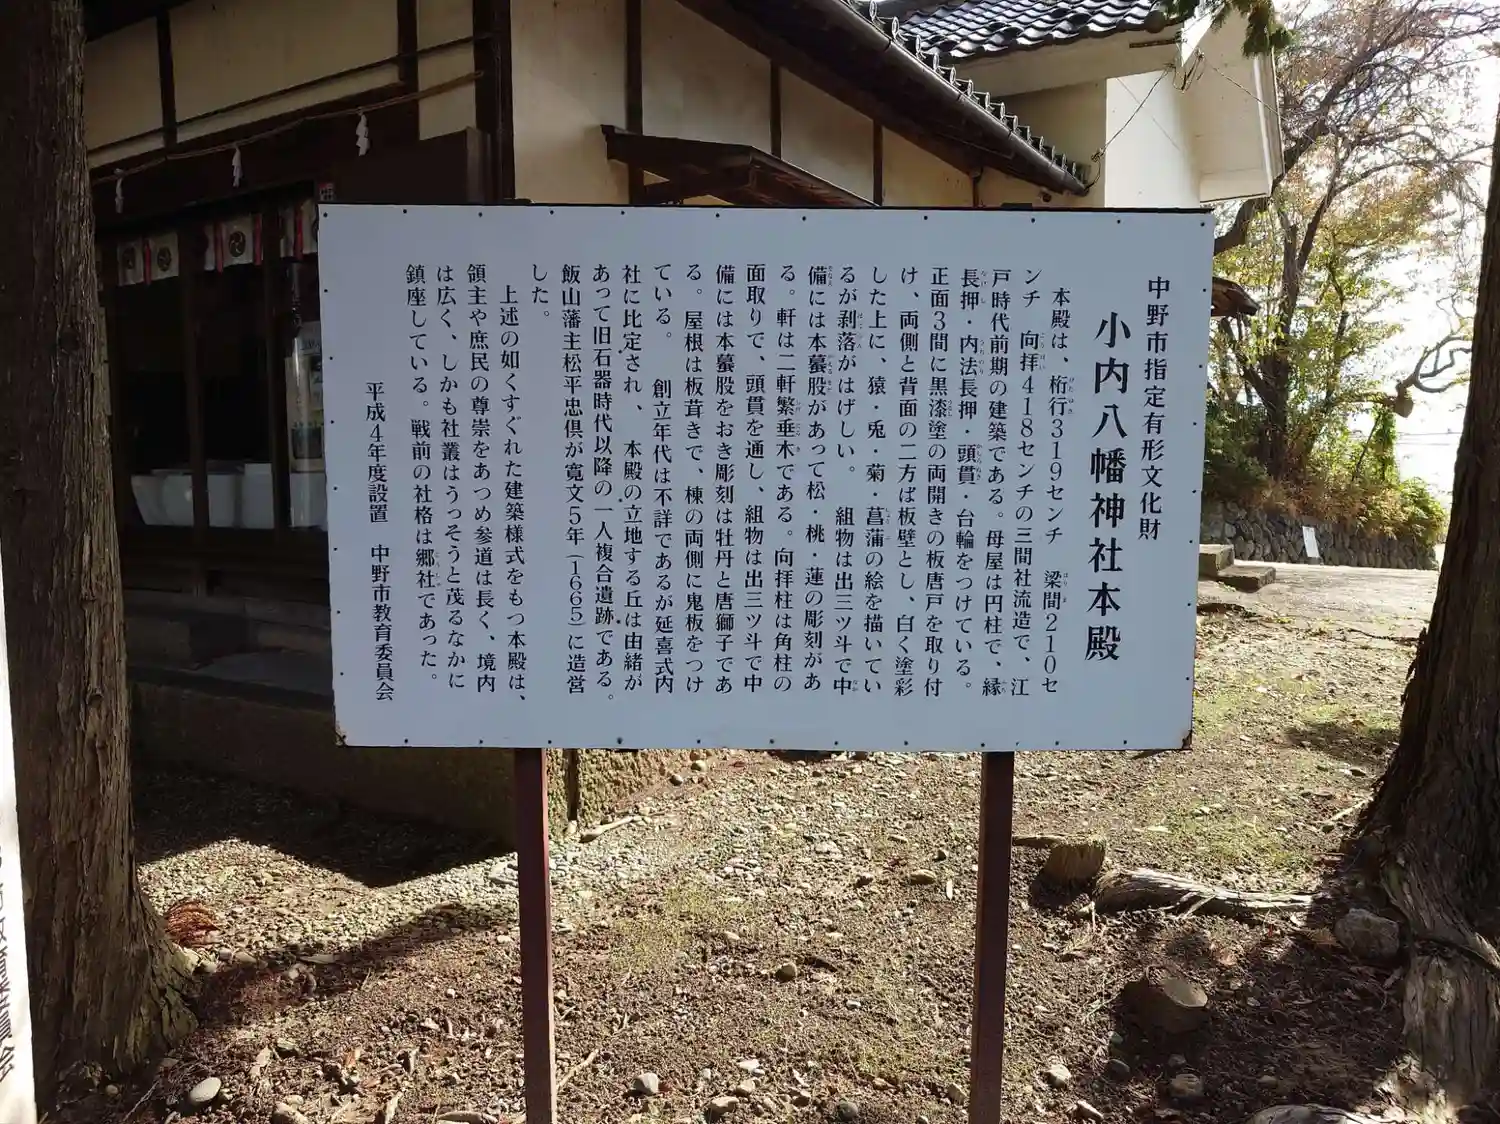 中野市指定有形文化財
小内八幡神社本殿
本殿は、桁行319センチ　梁間210セ
ンチ　向拝418センチの三間社流造で、江
戸時代前期の建築である。母屋は円柱で、縁
長押・内法長押・頭貫・台輪をつけている。
正面3間に黒漆塗の両開きの板唐戸を取り付
け、両側と背面の二方は板壁とし、白く塗彩
した上に、猿・兎・菊・菖蒲の絵を描いてい
るが剥落がはげしい。　組物は出三ツ斗で中
備には本蟇股があって松・桃・蓮の彫刻があ
る。軒は二軒繁垂木である。向拝柱は角柱の
面取りで、頭貫を通し、組物は出三ツ斗で中
備には本蟇股をおき彫刻は牡丹と唐獅子であ
る。屋根は板葺きで、棟の両側に鬼板をつけ
ている。　創立年代は不詳であるが延喜式内
社に比定され、　本殿の立地する丘は由緒が
あって旧石器時代以降の一人複合遺跡である。
飯山藩主松平忠倶が寛文5年（1665）に造営
した。
上述の如くすぐれた建築様式をもつ本殿は、
領主や庶民の尊崇をあつめ参道は長く、境内
は広く、しかも社叢はうっそうと茂るなかに
鎮座している。戦前の社格は郷社であった。
平成4年度設置　中野市教育委員会